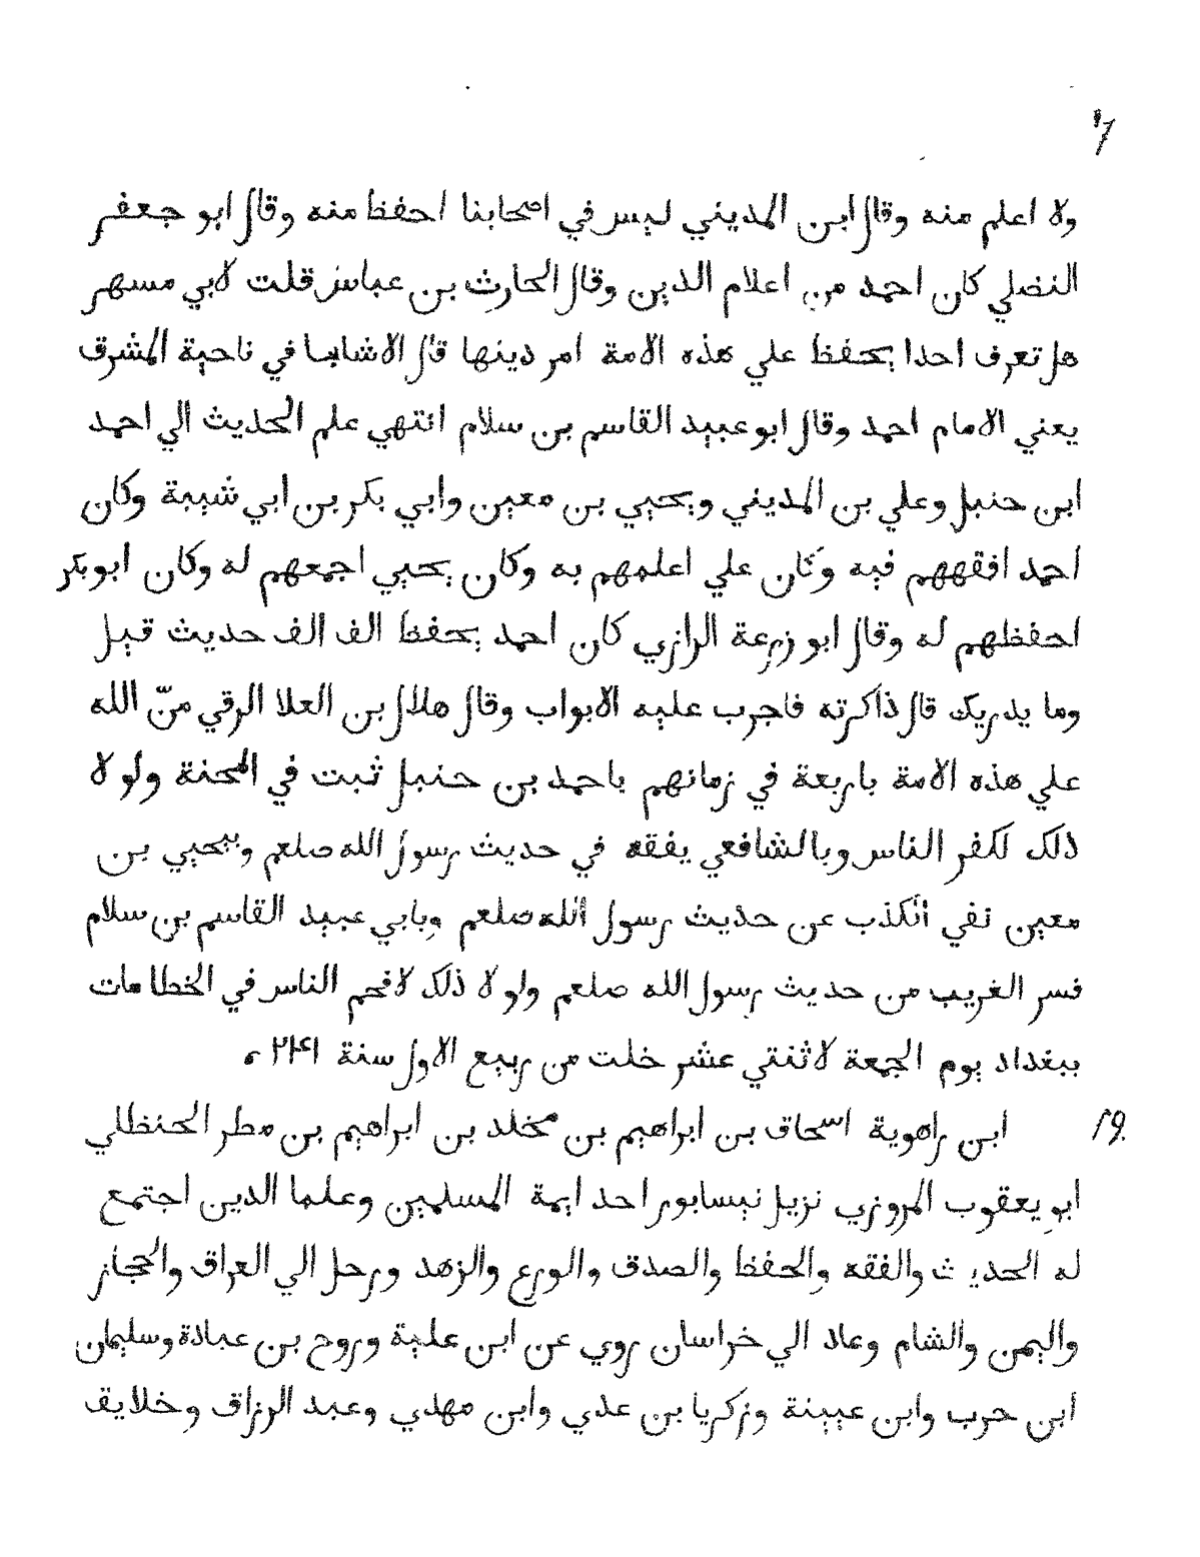 ٧
ولا اعلم منه وقال ابن المديني ليس في اصحابنا احفظ منه وقال ابو جعفر
النضلي كان احمد من اعلام الدين وقال الحارث بن عباس قلت لابي مسهر
هل تعرف احدا يحفظ علي هذه الامة امر دينها قال لا الا شابا في ناحية المشرق
يعني الامام احمد وقال ابو عبيد القاسم بن سلام انتهي علم الحديث الي احمد
ابن حنبل وعلي بن المديني ويحيي بن معين وابي بكر بن ابي شيبة وكان
احمد افقههم فيه وكان علي اعلمهم به وكان يحيي اجمعهم له وكان ابو بكر
احفظهم له وقال ابو زرعة الرازي كان احمد يحفظ الف الف حديث قيل
وما يدريك قال ذاكرته فاجرب عليه الابواب وقال هلال بن العلا الرقي منّ الله
علي هذه الامة باربعة في زمانهم باحمد بن حنبل ثبت في المحنة ولو لا
ذلك لكفر الناس وبالشافعي يفقه في حديث رسول الله صلعم وبيحيي بن
معين نفي الكذب عن حديث رسول الله صلعم وبابي عبيد القاسم بن سلام
فسر الغريب من حديث رسول الله صلعم ولو لا ذلك لاقحم الناس في الخطا مات
ببغداد يوم الجمعة لاثنتي عشر خلت من ربيع الاول سنة ٢٤١ ،
١٩. ابن راهوية اسحاق بن ابراهيم بن مخلد بن ابراهيم بن مطر الحنظلي
ابو يعقوب المروزي نزيل نيسابور احد ايمة المسلمين وعلما الدين اجتمع
له الحديث والفقه والحفظ والصدق والورع والزهد ورحل الي العراق والحجاز
واليمن والشام وعاد الي خراسان روي عن ابن علية وروح بن عبادة وسليمان
ابن حرب وابن عيينة وزكريا بن عدي وابن مهدي وعبد الرزاق وخلايق